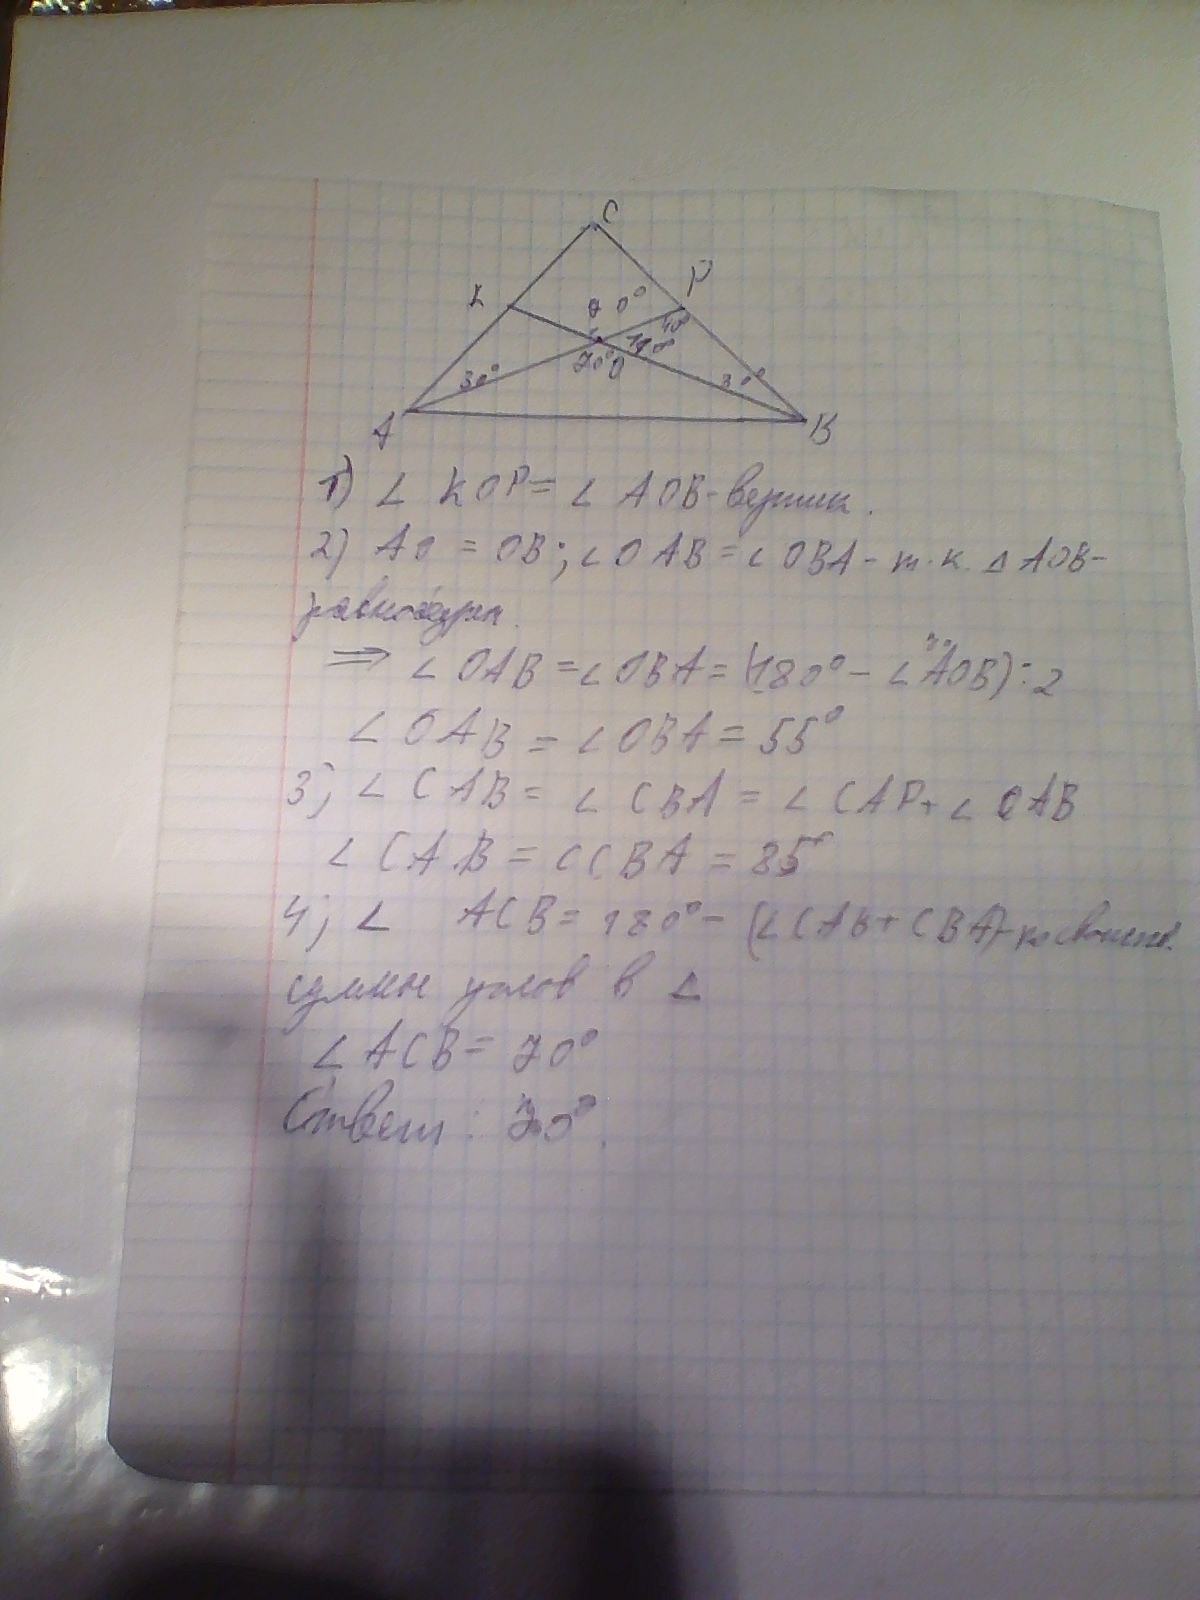 C
K P
70° 40°
70° O 110°
30° 30°
A B
1) ∠ KOP = ∠ AOB - вертик.
2) AO = OB; ∠OAB = ∠OBA - т.к. △ AOB -
равнобедрен.
⇒ ∠OAB = ∠OBA = (180° - ∠AOB):2
70°
∠OAB = ∠OBA = 55°
3) ∠CAB = ∠CBA = ∠CAP + ∠OAB
∠CAB = ∠CBA = 85°
4) ∠ ACB = 180° - (∠CAB + CBA) - по свойств.
суммы углов в △
∠ACB = 70°
Ответ: 70°.